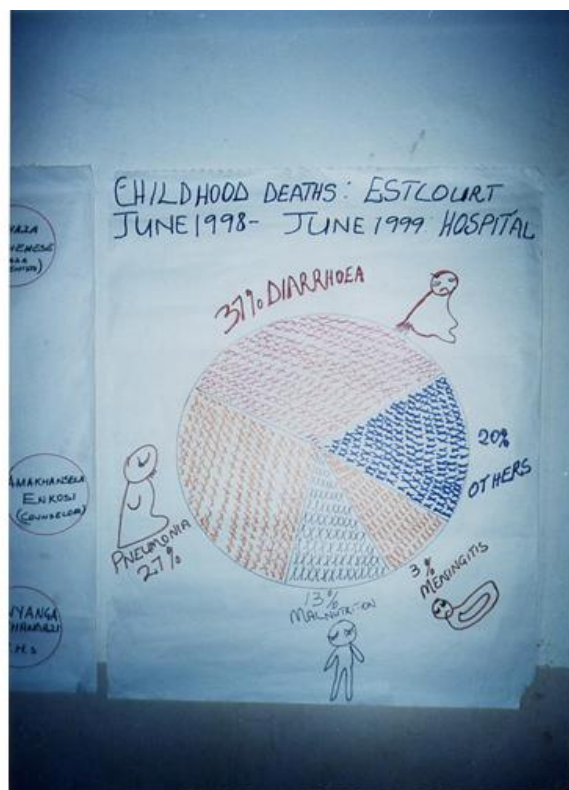 CHILDHOOD DEATHS: ESTCOURT
JUNE 1998- JUNE 1999 HOSPITAL
37% DIARRHOEA
20%
OTHERS
3%
MENINGITIS
13%
MALNUTRITION
PNEUMONIA
27%
AMAKHANSELA
ENKOSI
(COUNSELOR)
NYANGA